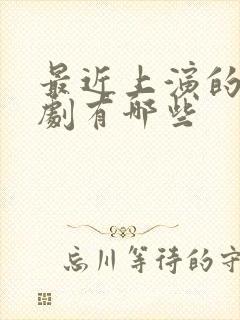 最近上演的
劇有哪些
忘川等待的守